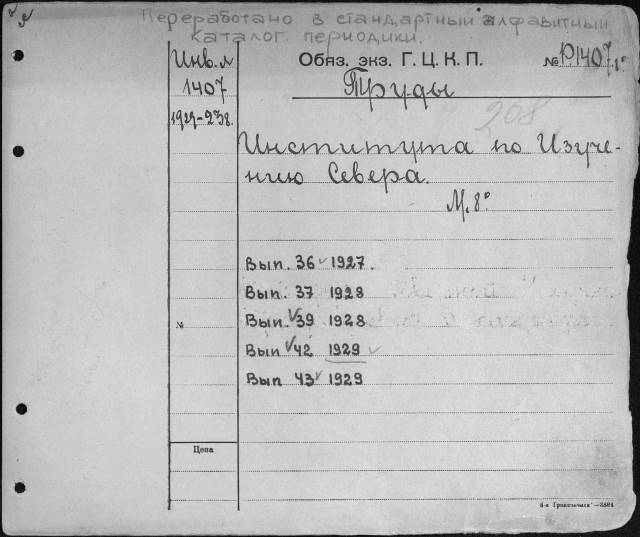 Переработано в стандартный алфавитный
каталог периодики.
Инв. л
1407
Обяз. экз. Г. Ц. К. П.
№ Р1407.1°
Труды
208
Института по Изуче-
нию Севера.
М. 8°
Вып. 36 1927.
Вып. 37 1928
Вып. 39 1928
№
Вып 42 1929
Вып 43 1929
Цена